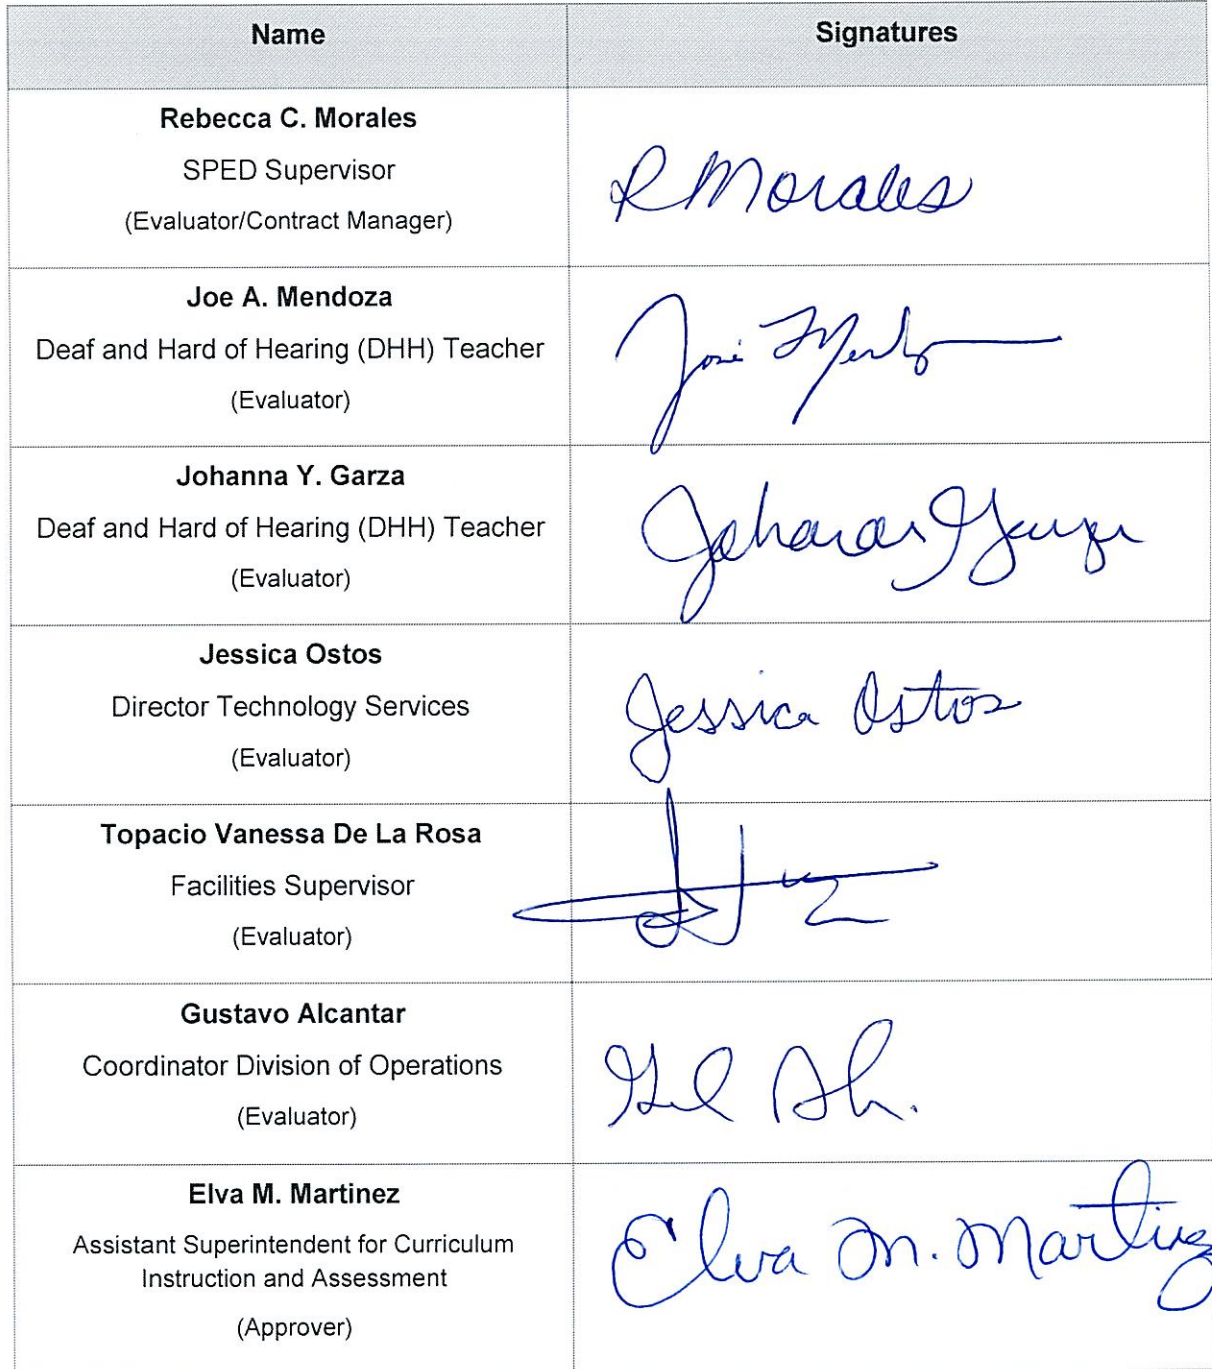 Name
Signatures
Rebecca C. Morales
SPED Supervisor
(Evaluator/Contract Manager)
R Morales
Joe A. Mendoza
Deaf and Hard of Hearing (DHH) Teacher
(Evaluator)
José
Johanna Y. Garza
Deaf and Hard of Hearing (DHH) Teacher
(Evaluator)
Jessica Ostos
Director Technology Services
(Evaluator)
Jessica Ostos
Topacio Vanessa De La Rosa
Facilities Supervisor
(Evaluator)
Gustavo Alcantar
Coordinator Division of Operations
(Evaluator)
Elva M. Martinez
Assistant Superintendent for Curriculum
Instruction and Assessment
(Approver)
Elva M. Martinez